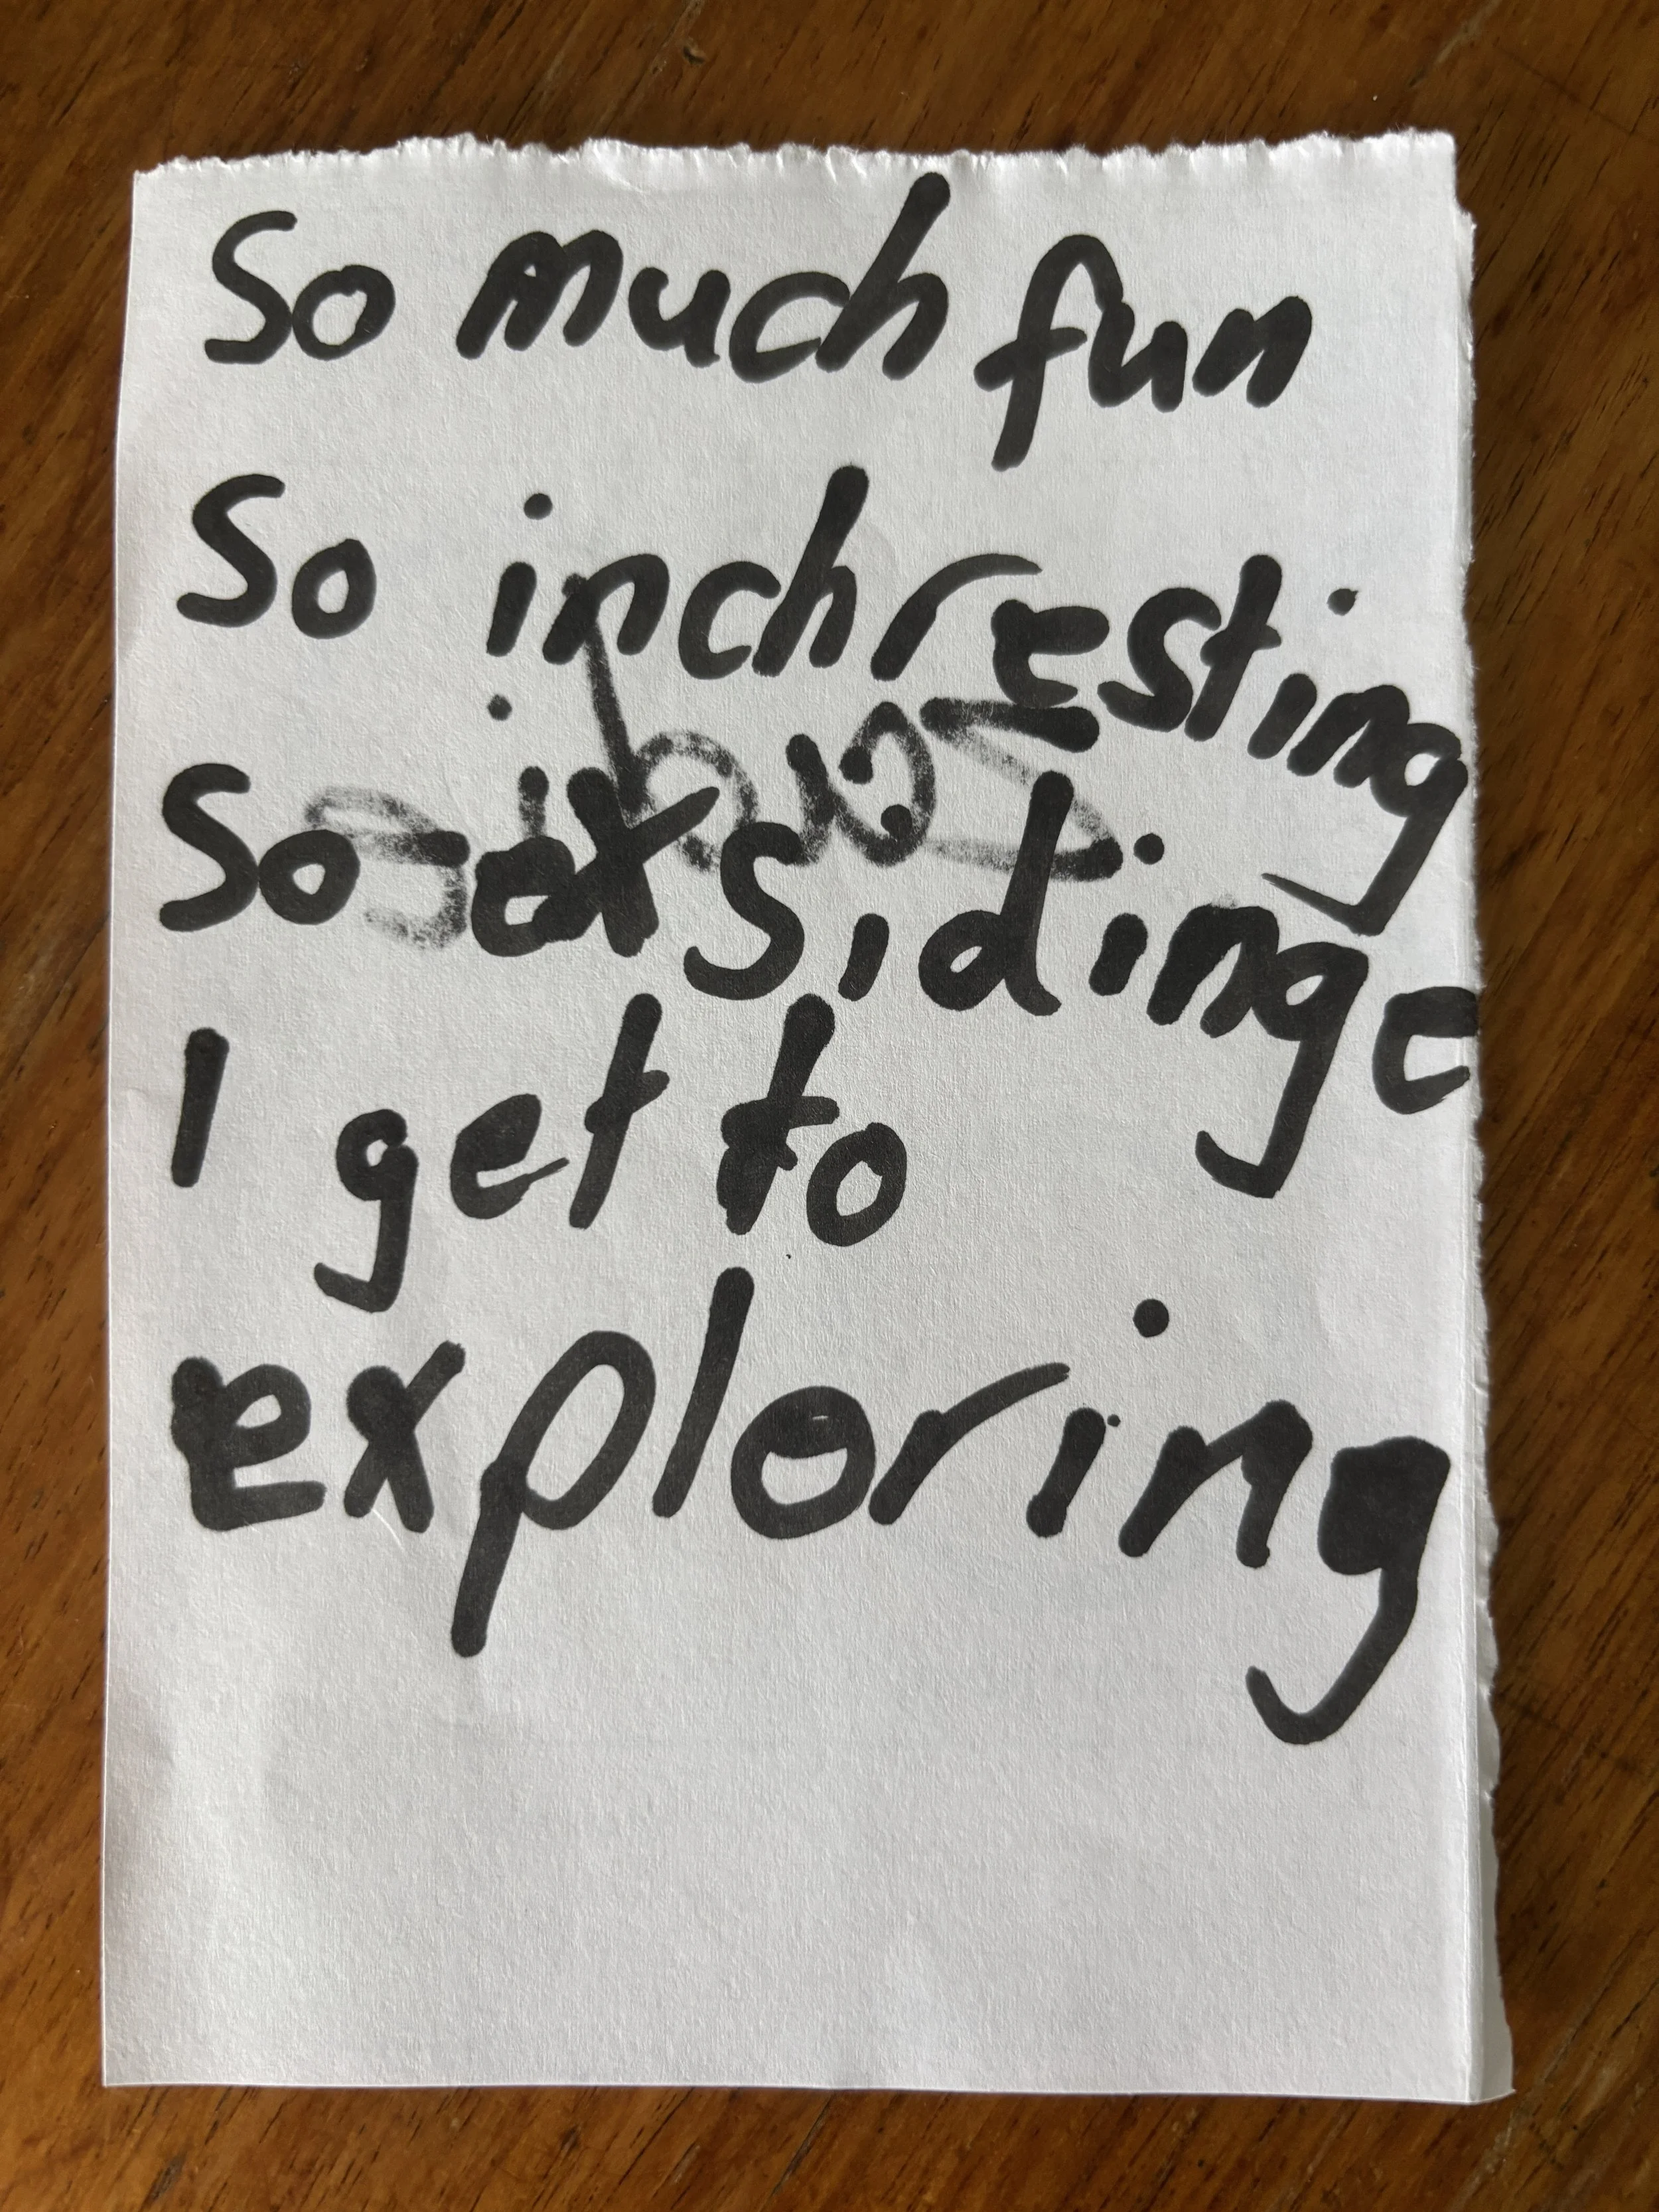 So much fun
So inchresting
So exsidinge
I get to
exploring